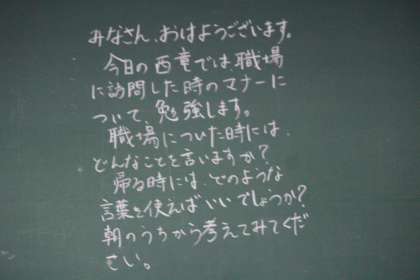 みなさん、おはようございます。
今日の西竜では職場
に訪問した時のマナーに
ついて、勉強します。
職場についた時には、
どんなことを言いますか？
帰る時には、どのような
言葉を使えばいいでしょうか？
朝のうちから考えてみてくだ
さい。